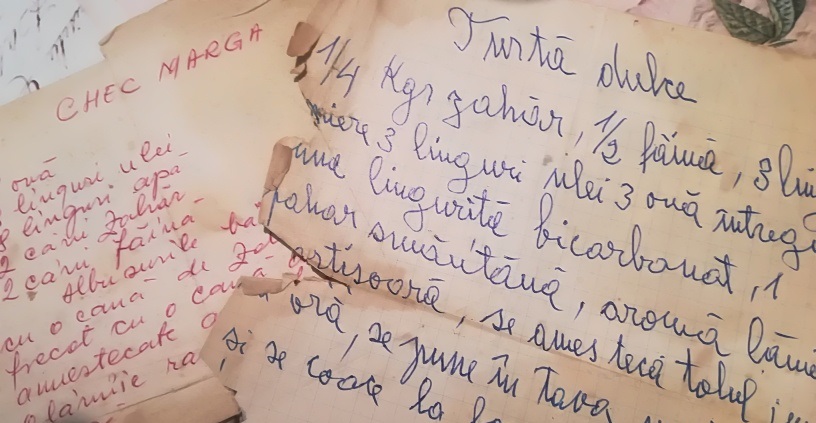 CHEC MARGA
ouă
linguri ulei
8 linguri apă
2 căni zahăr
2 căni făină
Albușurile
cu o cană de
frecat cu o cană
amestecate
lămîie
Turtă dulce
1/4 Kgr zahăr, 1/2 făină, 3
miere 3 linguri ulei 3 ouă întregi
una linguriță bicarbonat, 1
pahar smântână, aromă
se amestecă totul
oră, se pune în tava
și se coace la